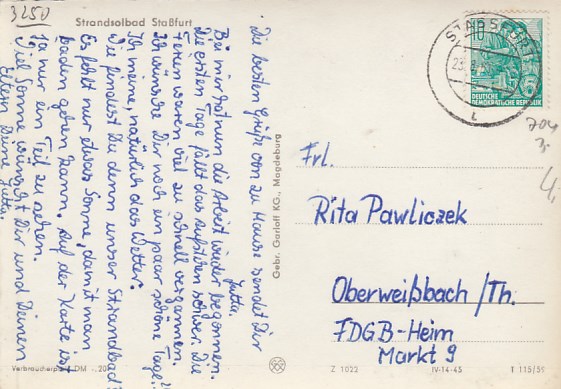 3250
Strandsolbad Staßfurt
Die besten Grüße von zu Hause sendet Dir
Jutta.
Bei mir hat nun die Arbeit wieder begonnen.
Die ersten Tage fällt das Aufstehen schwer. Die
Ferien waren viel zu schnell vergangen.
Ich wünsche Dir noch ein paar schöne Tage.
Ich meine, natürlich das Wetter.
Wie findest Du denn unser Strandbad?
Es fehlt nur etwas Sonne, damit man
baden gehen kann. Auf der Karte ist
ja nur ein Teil zu sehen.
Viel Sonne wünscht Dir und Deinen
Eltern Deine Jutta.
Verbraucherpreis DM -,20
Gebr. Garloff KG., Magdeburg
STASSFURT
10
DEUTSCHE
DEMOKRATISCHE REPUBLIK
704
Frl.
4.
Rita Pawliczek
Oberweißbach/Th.
FDGB-Heim
Markt 9
Z 1022
IV-14-45
T 115/59